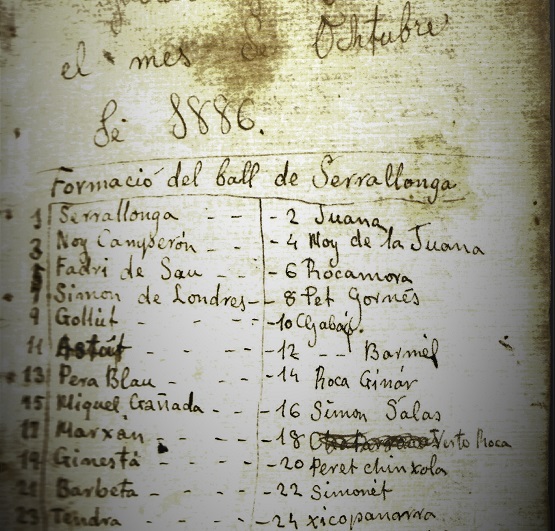 el mes de Ochtubre
de 1886.
Formació del ball de Serrallonga
1 Serrallonga - - - 2 Juana
3 Noy Camperón - - - 4 Noy de la Juana
5 Fadri de Sau - - - 6 Rocamora
7 Simon de Londres - - 8 Pet Gornés
9 Gollut - - - - 10
11 - - - - 12 - - Barmel
13 Pera Blau - - - - 14 Roca Ginár
15 Miquel Cañada - - - - 16 Simon Salas
17 Marxan - - - - 18 Roca
19 Ginestá - - - - 20 Peret chinxola
21 Barbeta - - - - 22 Simonét
23 Tendra - - - - 24 xicopanarra